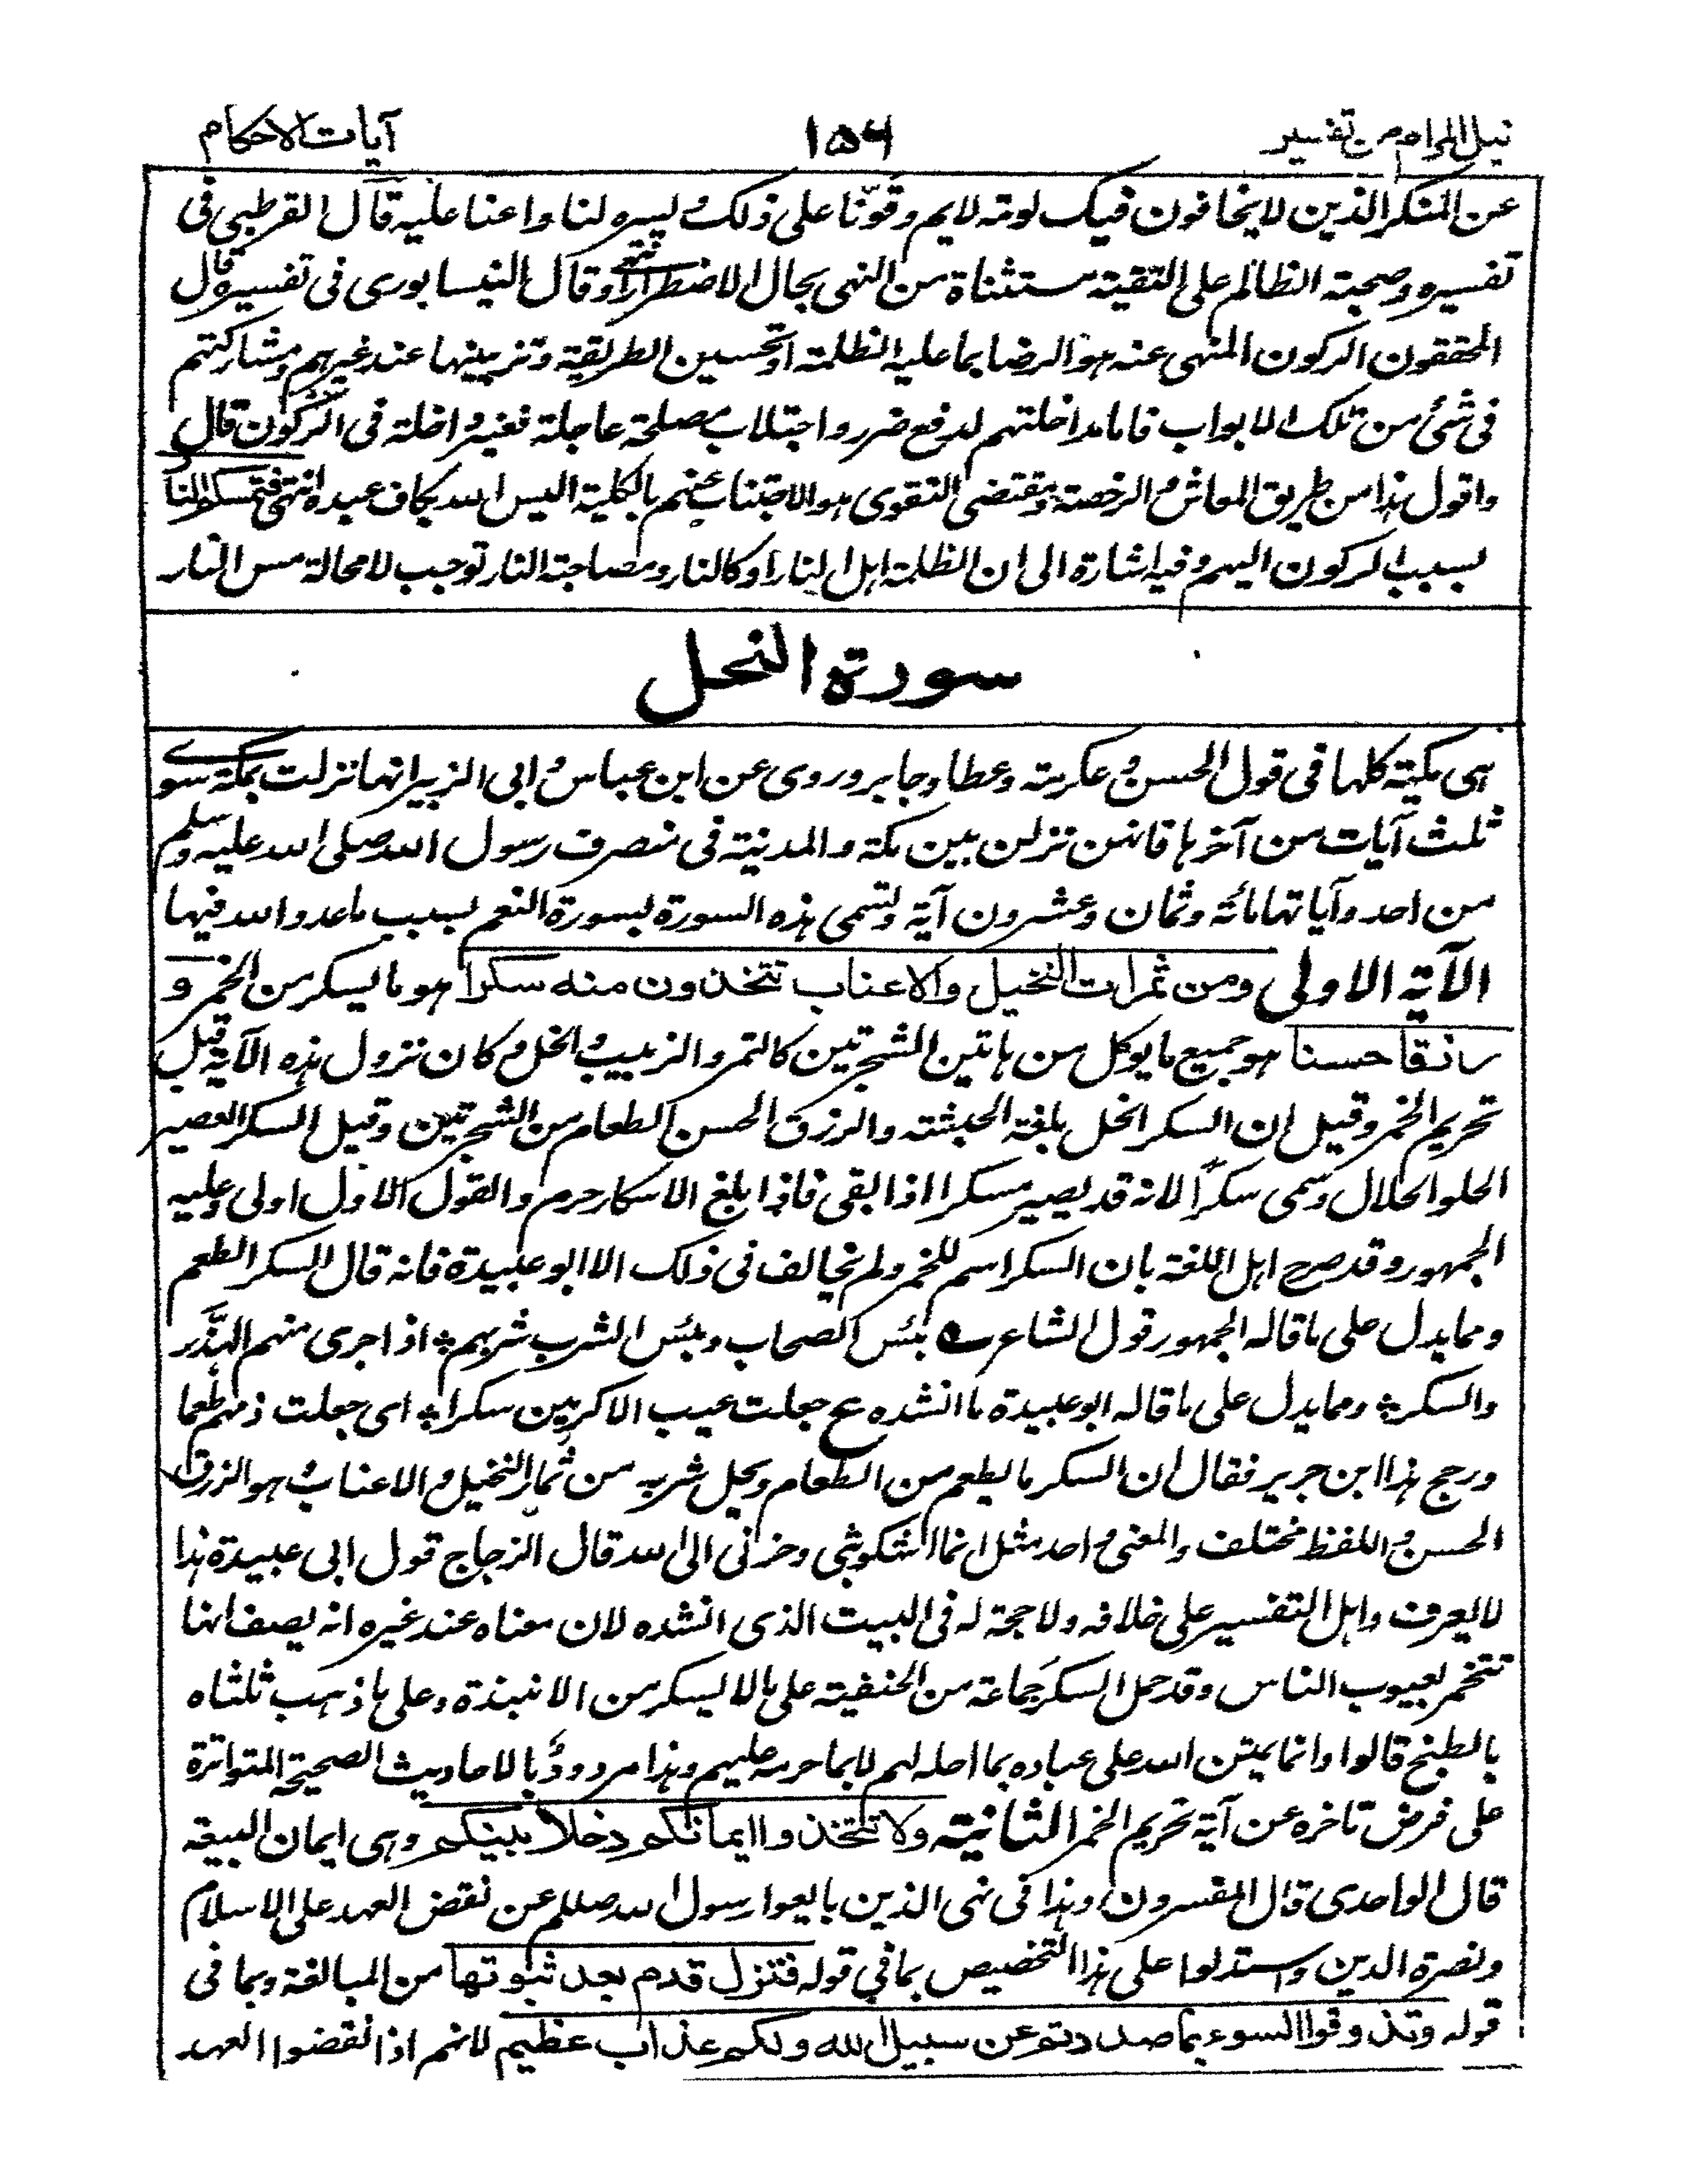 نيل المرام من تفسير ١٥٦ آيات الاحكام
عن المنكر الذين لا يخافون فيك لومة لايم وقوّنا على ذلك ويسره لنا واعنا عليه قال القرطبي في
تفسيره وصحبة الظالم على التقية مستثناة من النهي بحال الاضطرار انتهى وقال النيسابوري في تفسيره قال
المحققون الركون المنهي عنه هو الرضا بما عليه الظلمة او تحسين الطريقة وتزيينها عند غيرهم ومشاركتهم
في شئ من تلك الابواب فاما مداخلتهم لدفع ضرر واجتلاب مصلحة عاجلة فغير داخلة في الركون قال
واقول هذا من طريق المعاش والرخصة ومقتضى التقوى هو الاجتناب عنهم بالكلية اليس الله بكاف عبده انتهى فتمسكم النار
بسبب الركون اليهم وفيه اشارة الى ان الظلمة اهل النار او كالنار ومصاحبة النار توجب لا محالة مس النار
سورة النحل
هي مكية كلها في قول الحسن وعكرمة وعطا وجابر وروى عن ابن عباس وابي الزبير انها نزلت بمكة سوے
ثلث آيات من آخرها فانهن نزلن بين مكة والمدينة في منصرف رسول الله صلى الله عليه وسلم
من احد وآياتها مائة وثمان وعشرون آية وتسمى هذه السورة بسورة النعم بسبب ما عدد الله فيها
الآية الاولى ومن ثمرات النخيل والاعناب تتخذون منه سكرا هو ما يسكر من الخمر و
رزقا حسنا هو جميع ما يوكل من هاتين الشجرتين كالتمر والزبيب والخل وكان نزول هذه الآية قبل
تحريم الخمر وقيل ان السكر الخل بلغة الحبشة والرزق الحسن الطعام من الشجرتين وقيل السكر العصير
الحلو الحلال وسمى سكرًا لانه قد يصير مسكرا اذا بقى فاذا بلغ الاسكار حرم والقول الاول اولى وعليه
الجمهور وقد صرح اهل اللغة بان السكر اسم للخمر ولم يخالف في ذلك الا ابو عبيدة فانه قال السكر الطعم
ومما يدل على ما قاله الجمهور قول الشاعر ے بئس الصحاب وبئس الشرب شربهم ؞ اذا جرى منهم الهذّر
والسكر ؞ ومما يدل على ما قاله ابو عبيدة ما انشده ع جعلت عيب الاكرمين سكرا ؞ اى جعلت ذمهم طعما
ورجح هذا ابن جرير فقال ان السكر ما يطعم من الطعام ويحل شربه من ثمار النخيل والاعناب وهو الرزق
الحسن واللفظ مختلف والمعنى واحد مثل انما اشكو بثي وحزني الى الله قال الزجاج قول ابي عبيدة هذا
لا يعرف واهل التفسير على خلافه ولا حجة له في البيت الذي انشده لان معناه عند غيره انه يصف انها
تتخمر بعيوب الناس وقد حمل السكر جماعة من الحنفية على ما لا يسكر من الانبذة وعلى ما ذهب ثلثاه
بالطبخ قالوا وانما يمتن الله على عباده بما احله لهم لا بما حرمه عليهم وهذا مردودٌ بالاحاديث الصحيحة المتواترة
على فرض تاخره عن آية تحريم الخمر الثانية ولا تتخذوا ايمانكم دخلا بينكم وهى ايمان البيعة
قال الواحدي قال المفسرون وهذا في نهى الذين بايعوا رسول الله صللم عن نقض العهد على الاسلام
ونصرة الدين واستدلوا على هذا التخصيص بما في قوله فتزل قدم بعد ثبوتها من المبالغة وبما في
قوله وتذوقوا السوء بما صددتم عن سبيل الله ولكم عذاب عظيم لانهم اذا نقضوا العهد